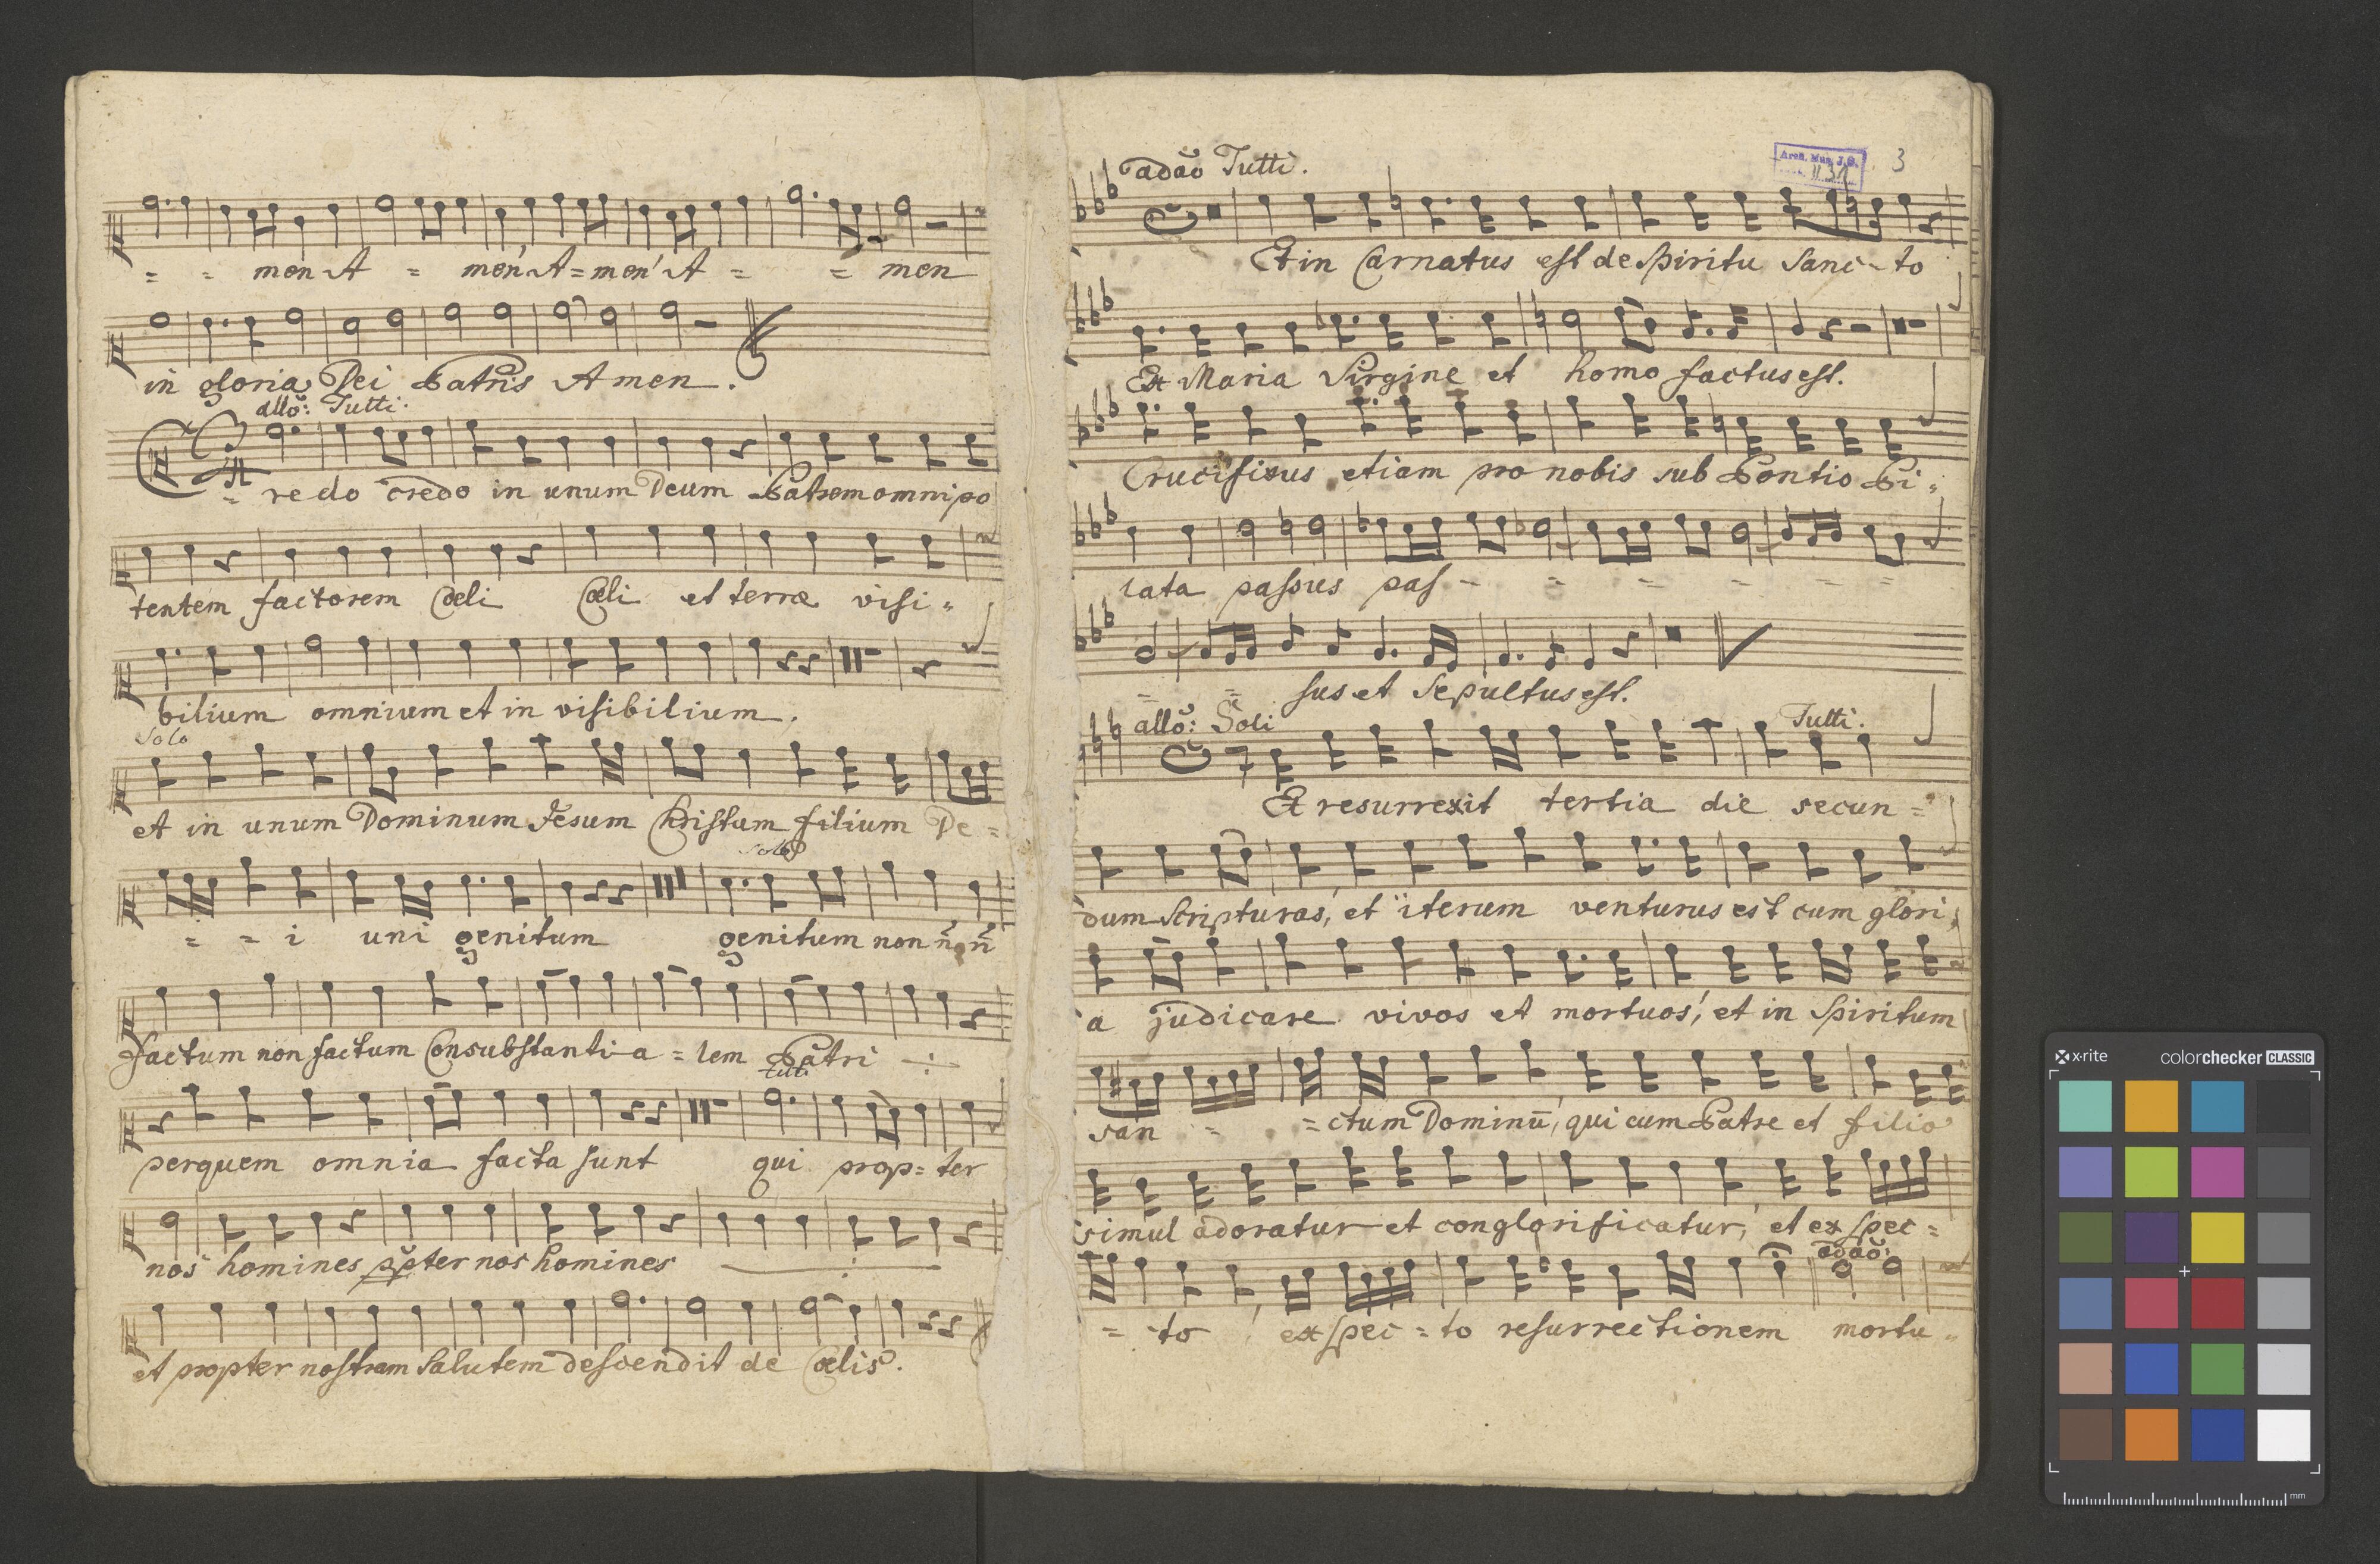 = = men A = men' A = men' A = = men
in gloria Dei Patris Amen.
allõ: Tutti.
Credo credo in unum Deum Patrem omnipo
tentem factorem Cœli Cœli et terræ visi=
bilium omnium et in visibilium.
Solo
et in unum Dominum Jesum Christum filium De=
solo
= = i uni genitum genitum non
factum non factum Consubstanti-a=lem Patri
tutti
perquem omnia facta sunt qui prop=ter
nos homines ppter nos homines
et propter nostram Salutem descendit de Cœlis.
adaõ Tutti.
Arch. Mus. J.G.
II 31
3
Et in Carnatus est de Spiritu Sanc-to
Ex Maria Virgine et homo factus est.
Crucifixus etiam pro nobis sub Pontio Pi=
lata passus pas- = = = = =
= = sus et Sepultus est.
allõ: Soli Tutti.
Et resurrexit tertia die secun=
dum Scripturas, et iterum venturus est cum glori=
a judicare vivos et mortuos, et in Spiritum
san = =ctum Dominū, qui cum Patre et filio
simul adoratur et conglorificatur, et exspec=
adaõ:
= -to exspec=to resurrectionem mortu=